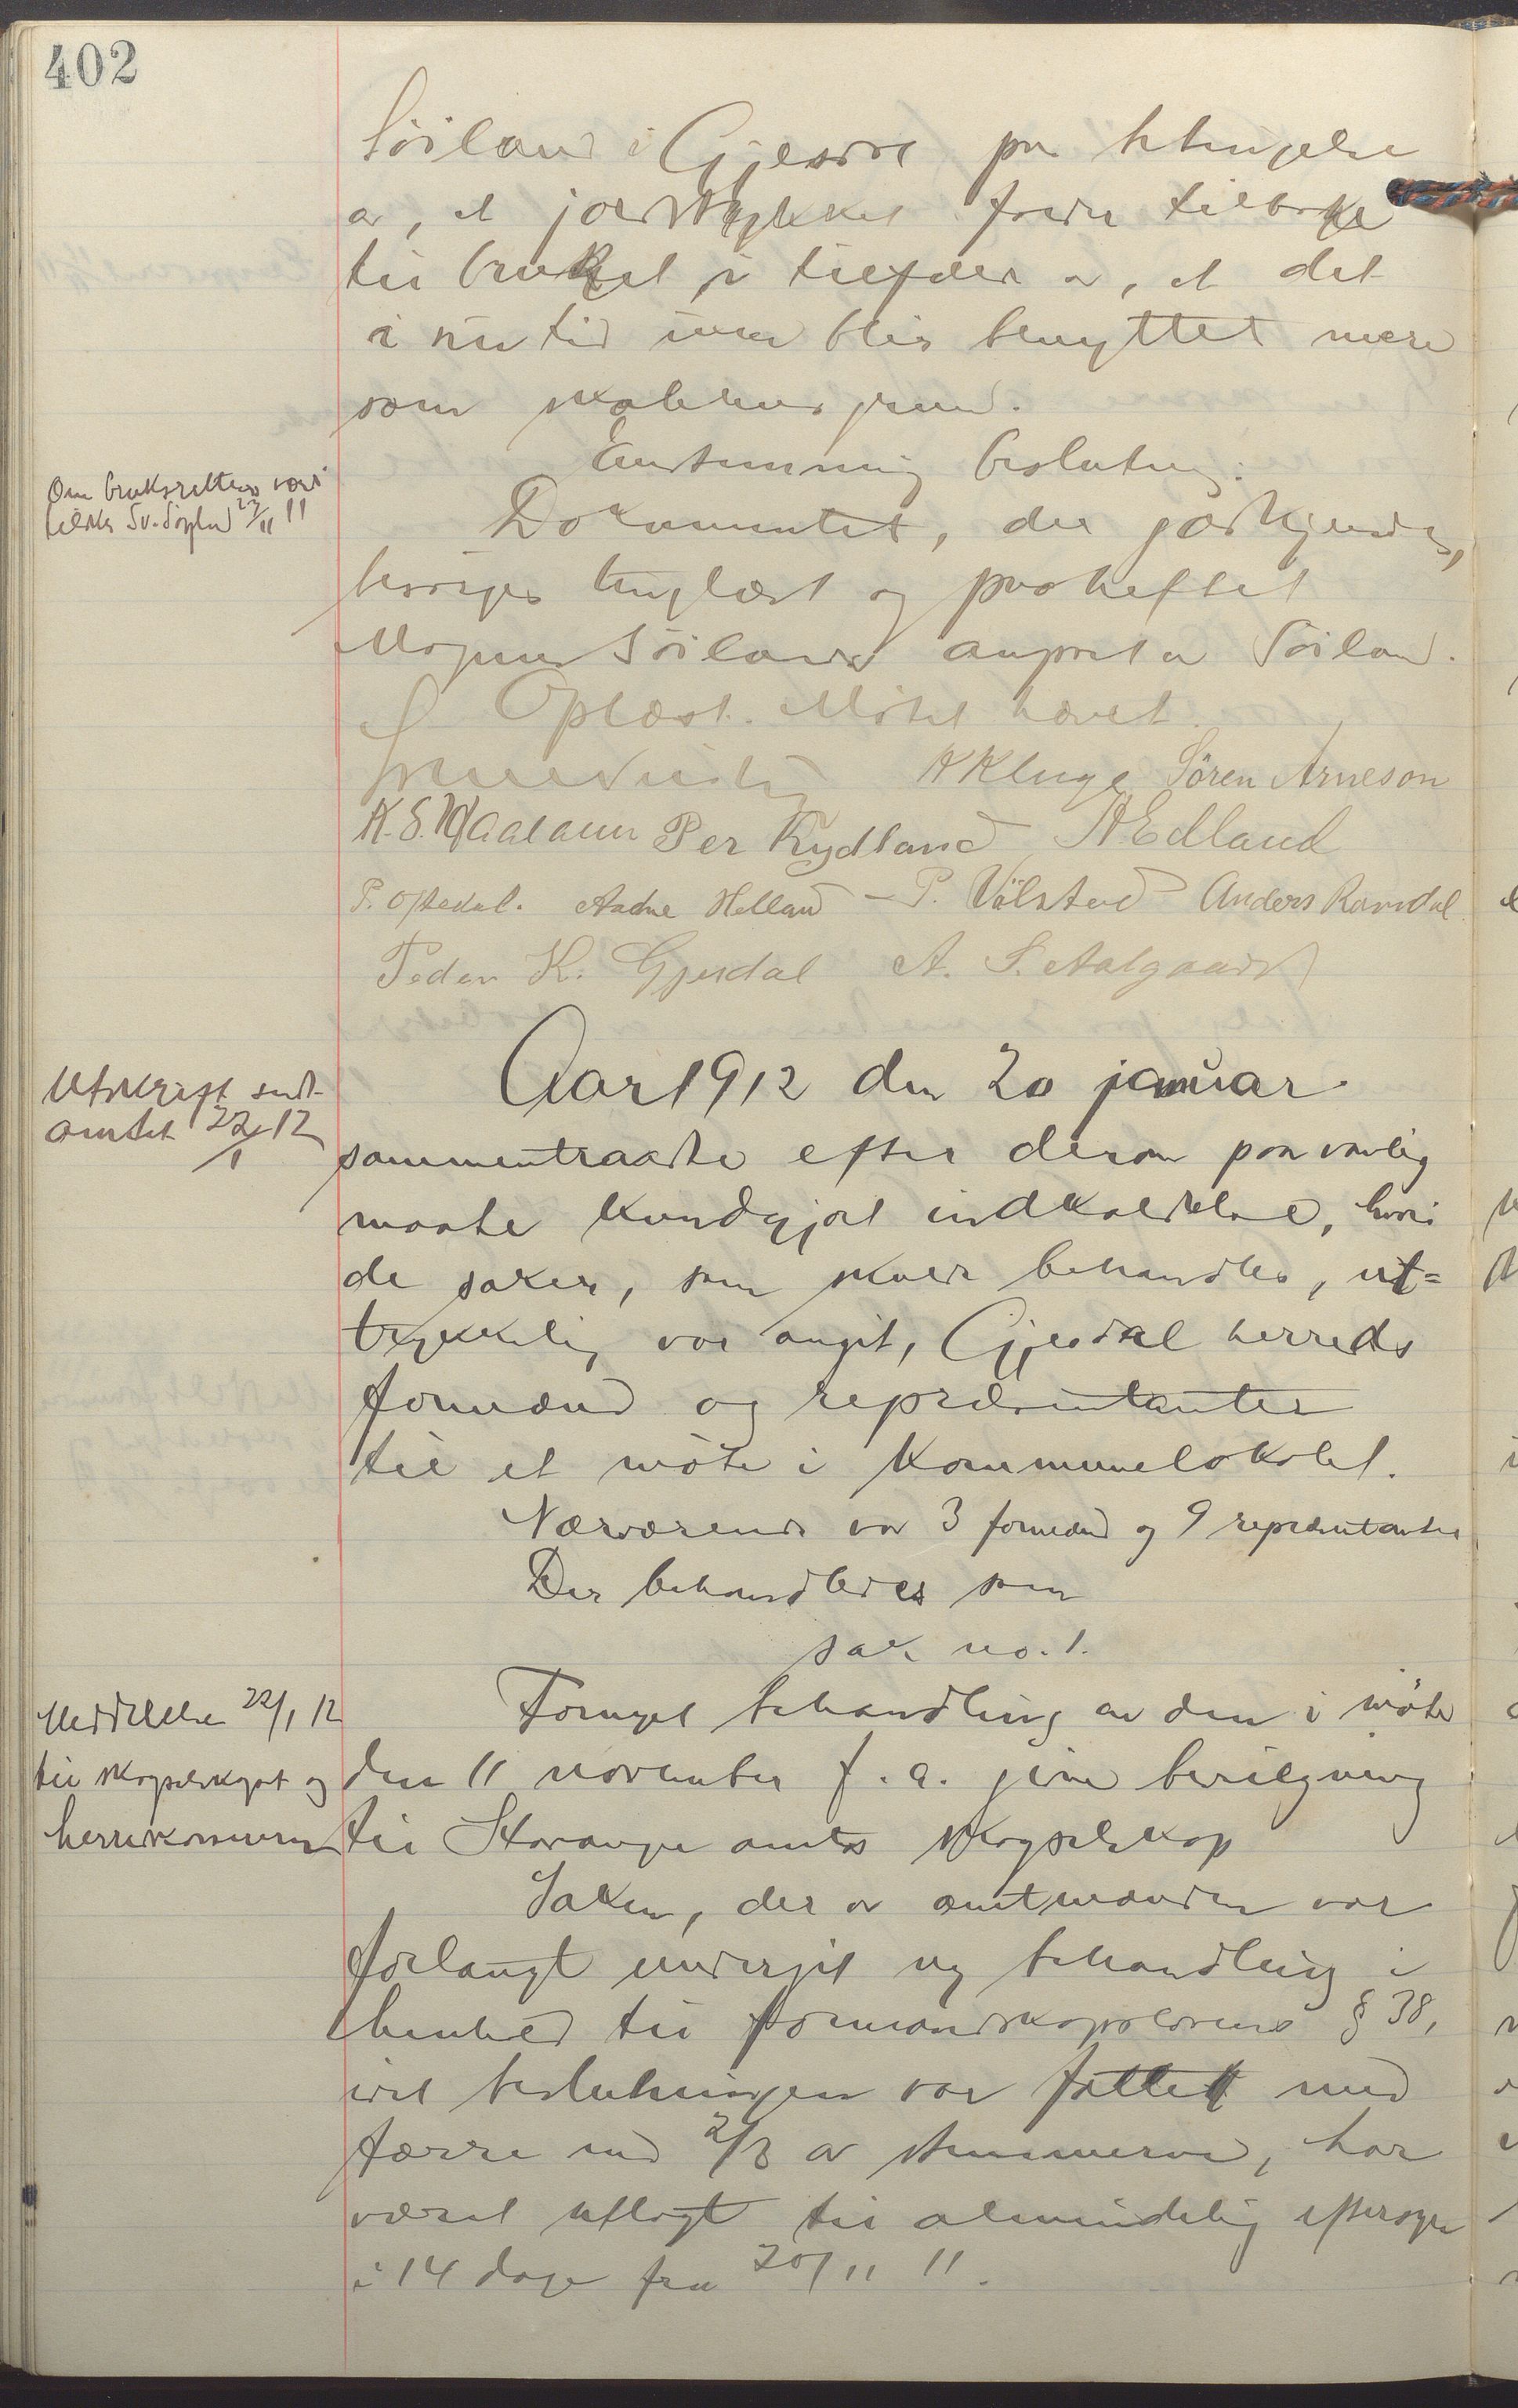 402
Söiland i Gjesdal paa betingelse
av, at jordstykket falder tilbake
til bruket i tilfælde av, at det
i sin tid ikke blir benyttet mere
som skolehusgrund.
Enstemmig beslutning.
Om bruksretten
22/11 11
Dokumentet, der godkjendes,
besørges tinglæst og paaheftet
Mogens Söiland angaaet Söiland.
Oplæst. Mötet hævet.
K Kluge Sören Arneson
K. S. Madland Per Kydland A. Edland
P. Oftedal. Aadne Helland – P. Völstad Anders Ramdal
Peder K. Gjesdal A. S. Aalgaard
Aar 1912 den 20 januar
Utskrift sendt
amtet 22/1 12
sammentraadte efter derom paa vanlig
maate kundgjort indkaldelse, hvori
de saker, som skulde behandles, ut-
trykkelig var angit, Gjesdal herreds
formænd og repræsentanter
til et möte i kommunelokalet.
Nærværende var 3 formænd og 9 repræsentanter
Der behandledes som
sak no. 1.
Fornyet behandling av den i möte
Meddelelse 22/1 12
til skogselskapet og
herredskassereren
den 11 november f. a. givne bevilgning
til Stavanger amts skogselskap
Saken, der av amtmanden var
forlangt undergit ny behandling i
henhold til formandskapslovens § 38,
idet beslutningen var fattet med
færre end 2/3 av stemmerne, har
været utlagt til almindelig eftersyn
i 14 dage fra 20/11 11.